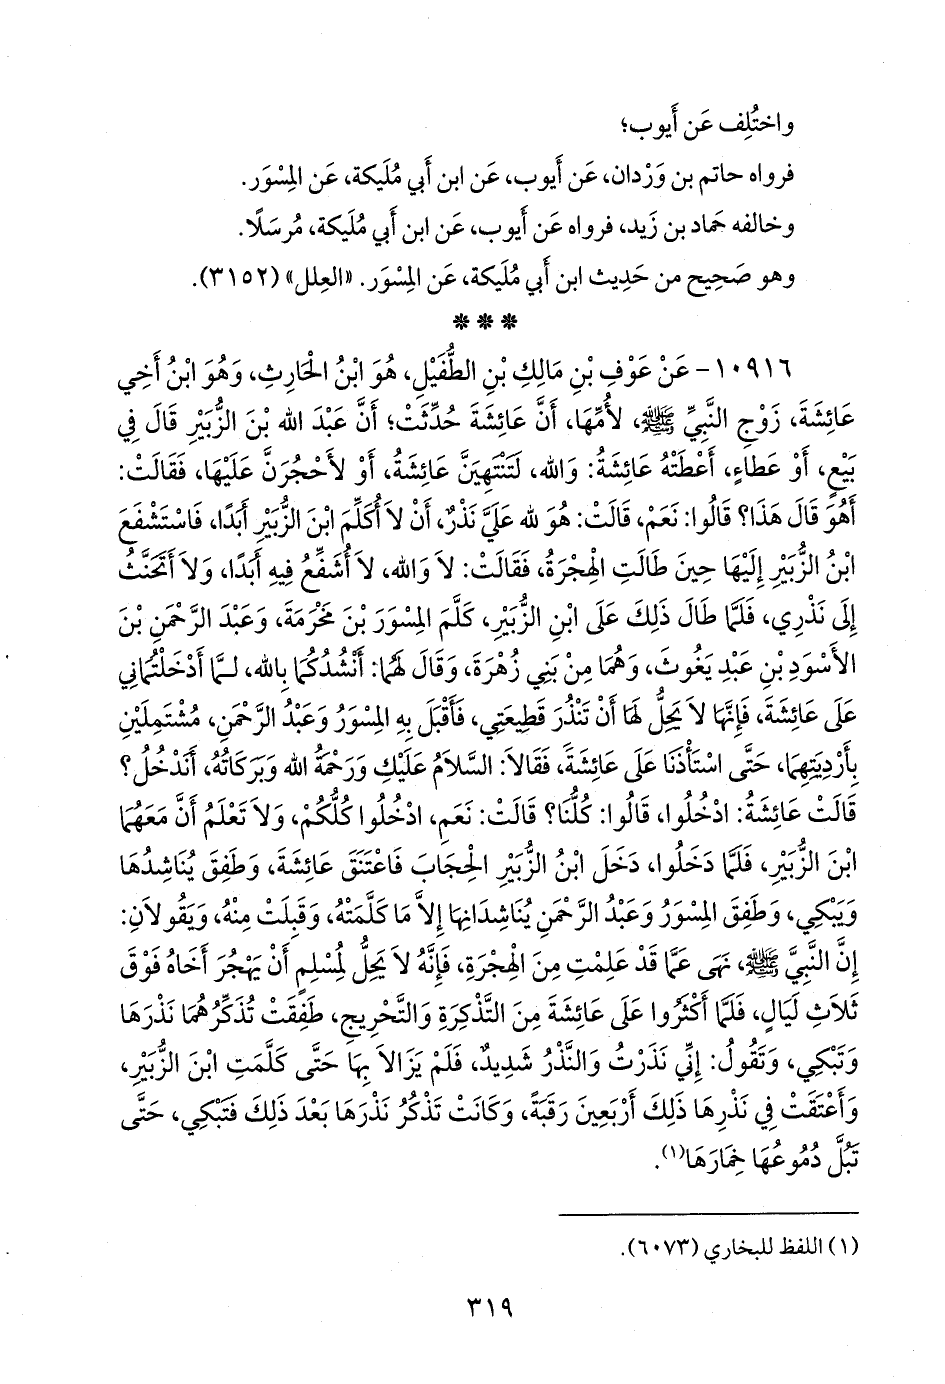 واختُلِف عَن أَيوب؛
فرواه حاتم بن وَرْدان، عَن أَيوب، عَن ابن أَبي مُلَيكة، عَن المِسْوَر.
وخالفه حَماد بن زَيد، فرواه عَن أَيوب، عَن ابن أَبي مُلَيكة، مُرسَلًا.
وهو صَحِيح من حَدِيث ابن أَبي مُلَيكة، عَن المِسْوَر. «العِلل» (٣١٥٢).
* * *
١٠٩١٦- عَنْ عَوْفِ بْنِ مَالِكِ بْنِ الطُّفَيْلِ، هُوَ ابْنُ الْحَارِثِ، وَهُوَ ابْنُ أَخِي
عَائِشَةَ، زَوْجِ النَّبِيِّ ﷺ، لأُمِّهَا، أَنَّ عَائِشَةَ حُدِّثَتْ؛ أَنَّ عَبْدَ الله بْنَ الزُّبَيْرِ قَالَ فِي
بَيْعٍ، أَوْ عَطَاءٍ، أَعْطَتْهُ عَائِشَةُ: وَالله، لَتَنْتَهِيَنَّ عَائِشَةُ، أَوْ لأَحْجُرَنَّ عَلَيْهَا، فَقَالَتْ:
أَهُوَ قَالَ هَذَا؟ قَالُوا: نَعَمْ، قَالَتْ: هُوَ لله عَلَيَّ نَذْرٌ، أَنْ لاَ أُكَلِّمَ ابْنَ الزُّبَيْرِ أَبَدًا، فَاسْتَشْفَعَ
ابْنُ الزُّبَيْرِ إِلَيْهَا حِينَ طَالَتِ الْهِجْرَةُ، فَقَالَتْ: لاَ وَالله، لاَ أُشَفِّعُ فِيهِ أَبَدًا، وَلاَ أَتَحَنَّثُ
إِلَى نَذْرِي، فَلَمَّا طَالَ ذَلِكَ عَلَى ابْنِ الزُّبَيْرِ، كَلَّمَ الْمِسْوَرَ بْنَ مَخْرَمَةَ، وَعَبْدَ الرَّحْمَنِ بْنَ
الأَسْوَدِ بْنِ عَبْدِ يَغُوثَ، وَهُمَا مِنْ بَنِي زُهْرَةَ، وَقَالَ لَهُمَا: أَنْشُدُكُمَا بِالله، لَـمَّا أَدْخَلْتُمَانِي
عَلَى عَائِشَةَ، فَإِنَّهَا لاَ يَحِلُّ لَهَا أَنْ تَنْذُرَ قَطِيعَتِي، فَأَقْبَلَ بِهِ الْمِسْوَرُ وَعَبْدُ الرَّحْمَنِ، مُشْتَمِلَيْنِ
بِأَرْدِيَتِهِمَا، حَتَّى اسْتَأْذَنَا عَلَى عَائِشَةَ، فَقَالاَ: السَّلاَمُ عَلَيْكِ وَرَحْمَةُ الله وَبَرَكَاتُهُ، أَنَدْخُلُ؟
قَالَتْ عَائِشَةُ: ادْخُلُوا، قَالُوا: كُلُّنَا؟ قَالَتْ: نَعَمِ، ادْخُلُوا كُلُّكُمْ، وَلاَ تَعْلَمُ أَنَّ مَعَهُمَا
ابْنَ الزُّبَيْرِ، فَلَمَّا دَخَلُوا، دَخَلَ ابْنُ الزُّبَيْرِ الْحِجَابَ فَاعْتَنَقَ عَائِشَةَ، وَطَفِقَ يُنَاشِدُهَا
وَيَبْكِي، وَطَفِقَ الْمِسْوَرُ وَعَبْدُ الرَّحْمَنِ يُنَاشِدَانِهَا إِلاَّ مَا كَلَّمَتْهُ، وَقَبِلَتْ مِنْهُ، وَيَقُولاَنِ:
إِنَّ النَّبِيَّ ﷺ، نَهَى عَمَّا قَدْ عَلِمْتِ مِنَ الْهِجْرَةِ، فَإِنَّهُ لاَ يَحِلُّ لِمُسْلِمٍ أَنْ يَهْجُرَ أَخَاهُ فَوْقَ
ثَلاَثِ لَيَالٍ، فَلَمَّا أَكْثَرُوا عَلَى عَائِشَةَ مِنَ التَّذْكِرَةِ وَالتَّحْرِيجِ، طَفِقَتْ تُذَكِّرُهُمَا نَذْرَهَا
وَتَبْكِي، وَتَقُولُ: إِنِّي نَذَرْتُ وَالنَّذْرُ شَدِيدٌ، فَلَمْ يَزَالاَ بِهَا حَتَّى كَلَّمَتِ ابْنَ الزُّبَيْرِ،
وَأَعْتَقَتْ فِي نَذْرِهَا ذَلِكَ أَرْبَعِينَ رَقَبَةً، وَكَانَتْ تَذْكُرُ نَذْرَهَا بَعْدَ ذَلِكَ فَتَبْكِي، حَتَّى
تَبُلَّ دُمُوعُهَا خِمَارَهَا(١).
(١) اللفظ للبخاري (٦٠٧٣).
٣١٩